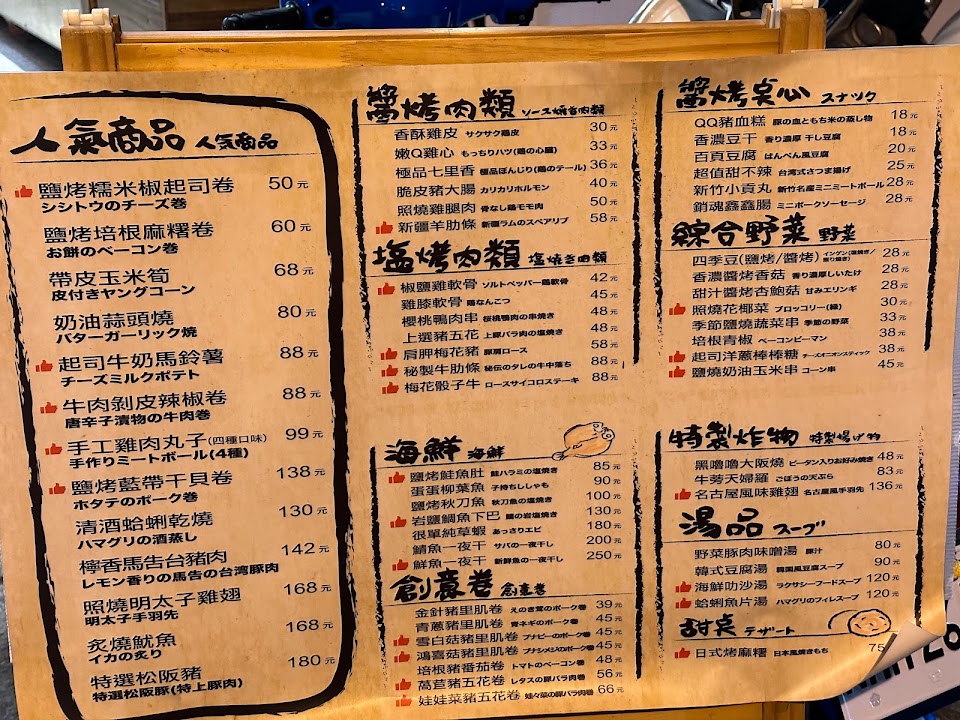 人氣商品 人気商品
鹽烤糯米椒起司卷 50元
シシトウのチーズ巻
鹽烤培根麻糬卷 60元
お餅のベーコン巻
帶皮玉米筍 68元
皮付きヤングコーン
奶油蒜頭燒 80元
バターガーリック焼
起司牛奶馬鈴薯 88元
チーズミルクポテト
牛肉剝皮辣椒卷 88元
唐辛子漬物の牛肉巻
手工雞肉丸子(四種口味) 99元
手作りミートボール(4種)
鹽烤藍帶干貝卷 138元
ホタテのポーク巻
清酒蛤蜊乾燒 130元
ハマグリの酒蒸し
檸香馬告台豬肉 142元
レモン香りの馬告の台湾豚肉
照燒明太子雞翅 168元
明太子手羽先
炙燒魷魚 168元
イカの炙り
特選松阪豬 180元
特選松阪豚(特上豚肉)
醬烤肉類 ソース焼き肉類
香酥雞皮 サクサク鶏皮 30元
嫩Q雞心 もっちりハツ(鶏の心臓) 33元
極品七里香 極品ぼんじり(鶏のテール) 36元
脆皮豬大腸 カリカリホルモン 40元
照燒雞腿肉 骨なし鶏モモ肉 50元
新疆羊肋條 新疆ラムのスペアリブ 58元
塩烤肉類 塩焼き肉類
椒鹽雞軟骨 ソルトペッパー鶏軟骨 42元
雞膝軟骨 鶏なんこつ 45元
櫻桃鴨肉串 桜桃鴨肉の串焼き 48元
上選豬五花 上豚バラ肉の塩焼き 48元
肩胛梅花豬 豚肩ロース 58元
秘製牛肋條 秘伝のタレの牛中落ち 88元
梅花骰子牛 ロースサイコロステーキ 88元
海鮮 海鮮
鹽烤鮭魚肚 鮭ハラミの塩焼き 85元
蛋蛋柳葉魚 子持ちししゃも 90元
鹽烤秋刀魚 秋刀魚の塩焼き 100元
岩鹽鯛魚下巴 鯛の岩塩焼き 130元
很單純草蝦 あっさりエビ 180元
鯖魚一夜干 サバの一夜干し 200元
鮮魚一夜干 新鮮魚の一夜干し 250元
創意卷 創意巻
金針豬里肌卷 えのき茸のポーク巻 39元
青蔥豬里肌卷 青ネギのポーク巻 45元
雪白菇豬里肌卷 ブナピーのポーク巻 45元
鴻喜菇豬里肌卷 ブナシメジのポーク巻 45元
培根豬番茄卷 トマトのベーコン巻 48元
萵苣豬五花卷 レタスの豚バラ肉巻 56元
娃娃菜豬五花卷 娃々菜の豚バラ肉巻 66元
醬烤点心 スナック
QQ豬血糕 豚の血ともち米の蒸し物 18元
香濃豆干 香り濃厚 干し豆腐 18元
百頁豆腐 はんぺん風豆腐 20元
超值甜不辣 台湾式さつま揚げ 25元
新竹小貢丸 新竹名産ミニミートボール 28元
銷魂鑫鑫腸 ミニポークソーセージ 28元
綜合野菜 野菜
四季豆(鹽烤/醬烤) インゲン(塩焼き/照り焼き) 28元
香濃醬烤香菇 香り濃厚しいたけ 28元
甜汁醬烤杏鮑菇 甘みエリンギ 28元
照燒花椰菜 ブロッコリー(緑) 30元
季節鹽燒蔬菜串 季節の野菜 33元
培根青椒 ベーコンピーマン 38元
起司洋蔥棒棒糖 チーズオニオンスティック 38元
鹽燒奶油玉米串 コーン串 45元
特製炸物 特製揚げ物
黑嚕嚕大阪燒 ピータン入りお好み焼き 48元
牛蒡天婦羅 ごぼうの天ぷら 83元
名古屋風味雞翅 名古屋風手羽先 136元
湯品 スープ
野菜豚肉味噌湯 豚汁 80元
韓式豆腐湯 韓国風豆腐スープ 90元
海鮮叻沙湯 ラクサシーフードスープ 120元
蛤蜊魚片湯 ハマグリのフィレスープ 120元
甜点 デザート
日式烤麻糬 日本風焼きもち 75